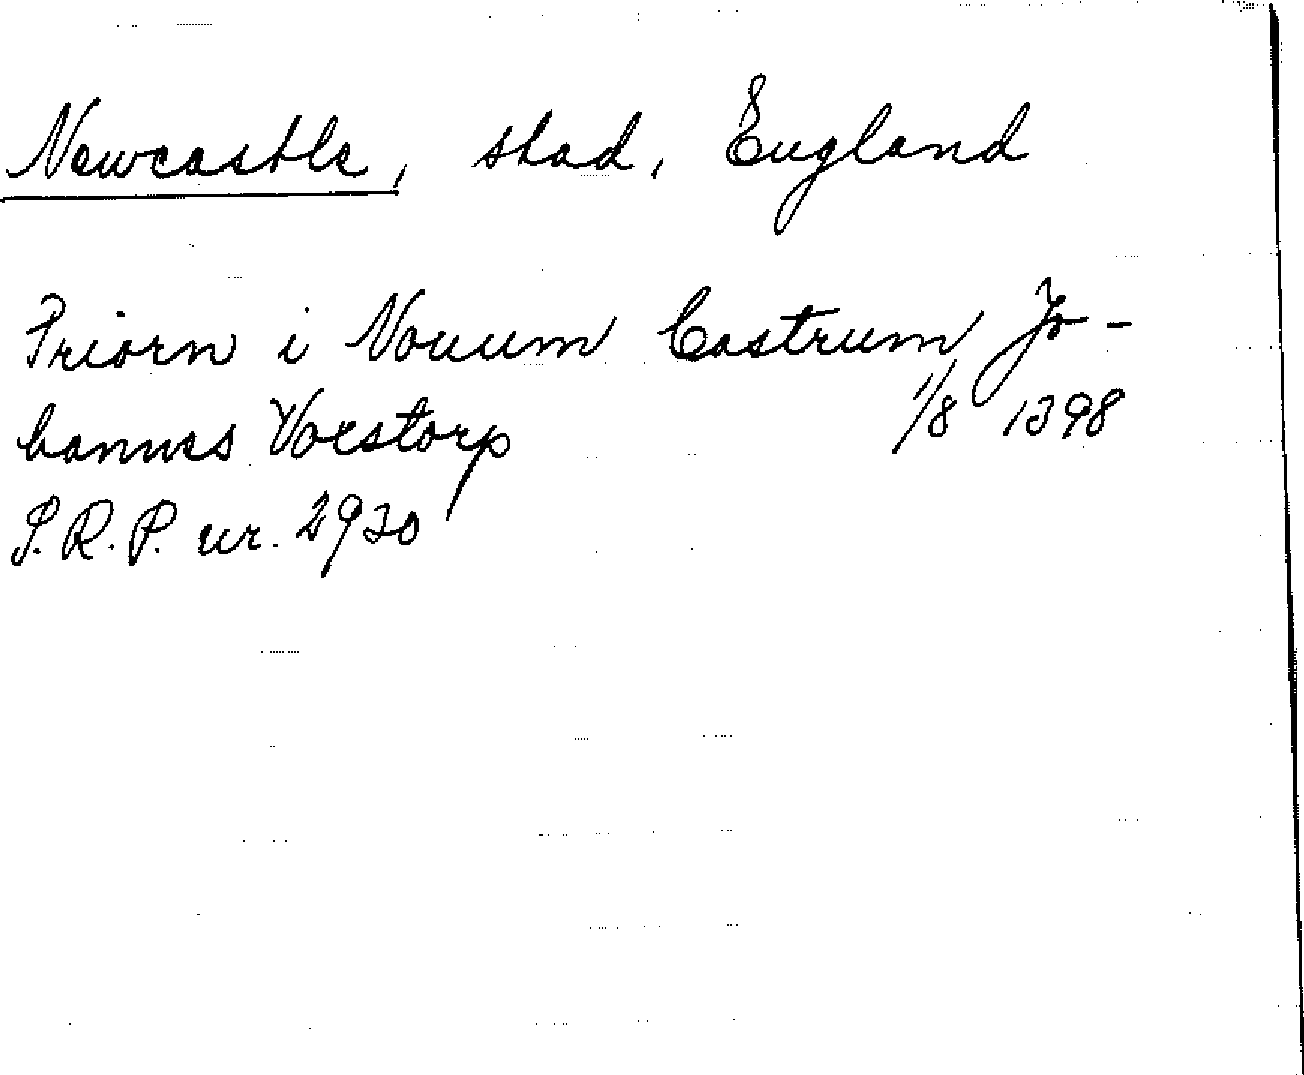 Newcastle, stad, England
Priorn i Nouum Castrum Jo-
hannes Vorstorp 1/8 1398
S.R.P. nr. 2930